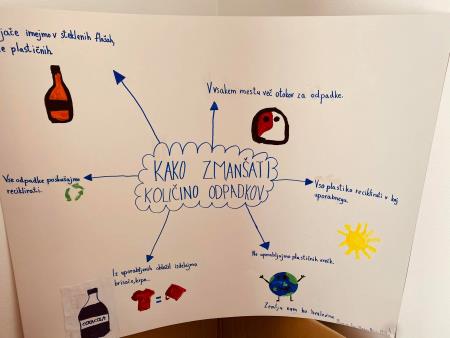 jače imejmo v steklenih flašah,
e plastičnih.
V vsakem mestu več otokov za odpadke.
KAKO ZMANŠATI
KOLIČINO ODPADKOV
Vse odpadke poskušajmo
reciklirati.
Vso plastiko reciklirati v kaj
uporabnega.
Iz uporabljenih oblačil izdelajmo
brisače, krpe...
Ne uporabljajmo plastičnih vrečk.
COCA COLA
=
Zemlja nam bo hvaležna